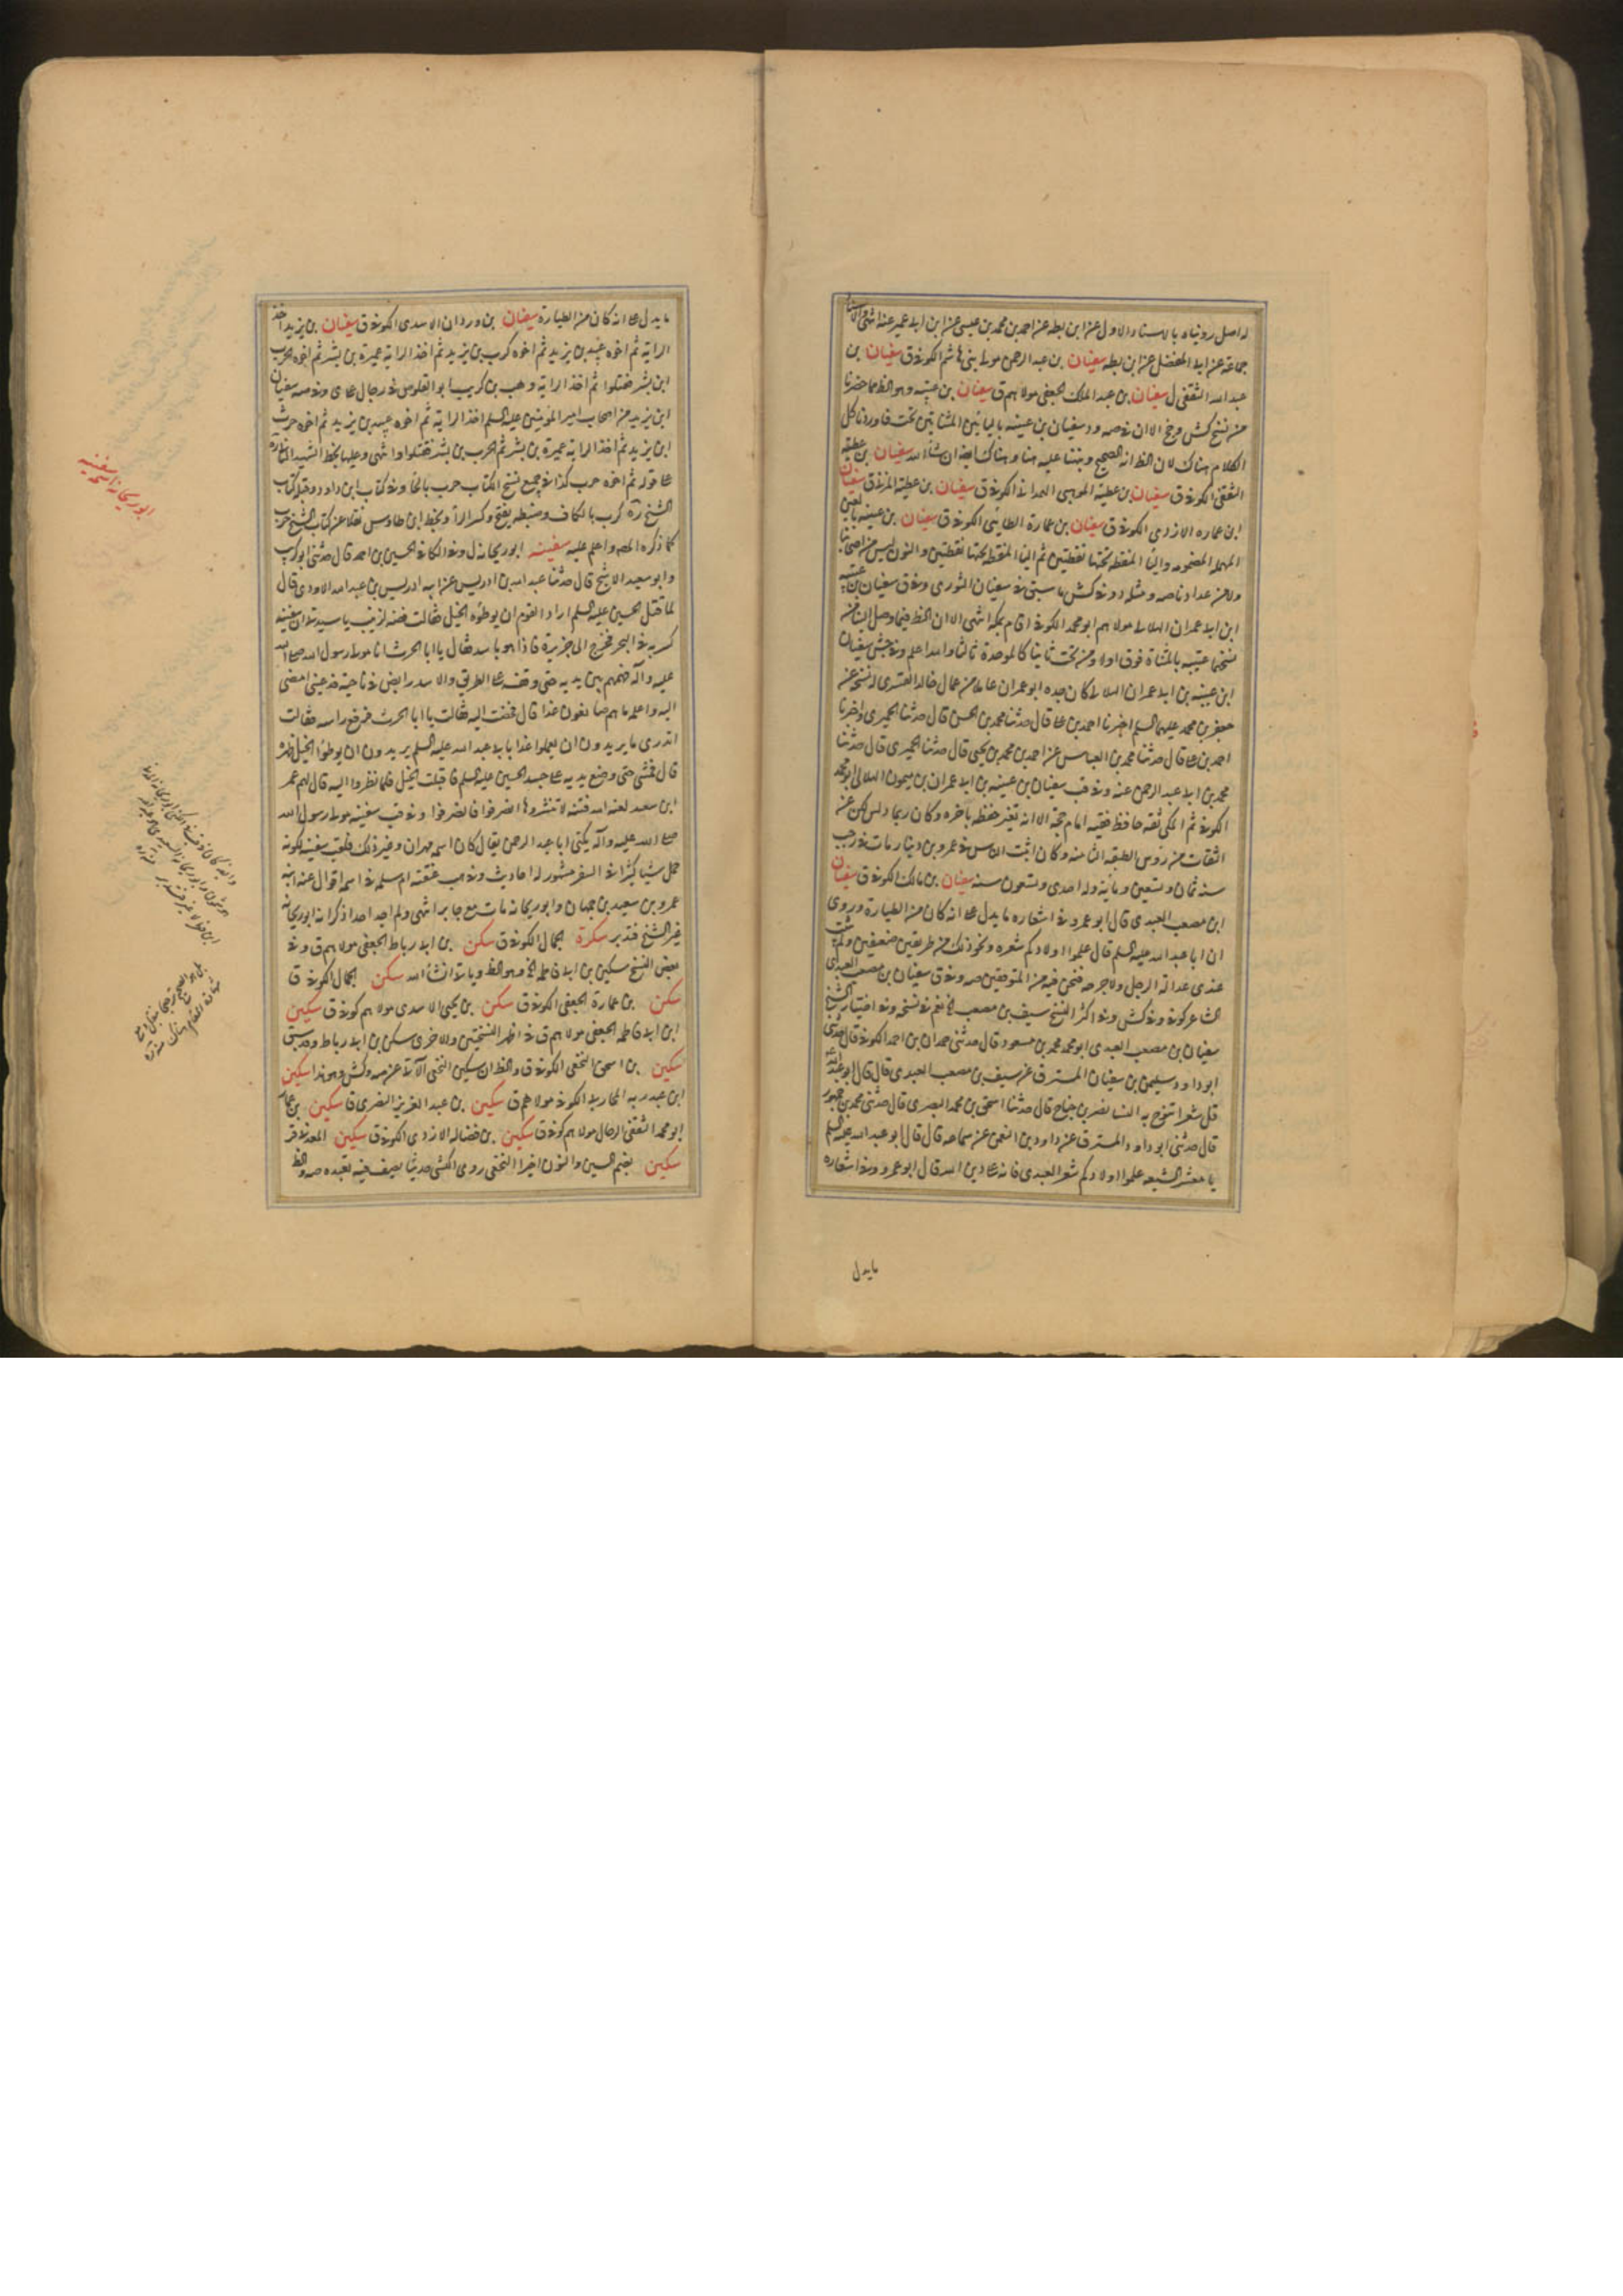 له اصل رويناه بالاسناد الاول عن ابن بطه عن احمد بن محمد بن عيسى عن ابن ابي عمير عنه انتهى والاسناد
جماعة عن ابي المفضل عن ابن بطه سفيان بن عبد الرحمن مولى بني هاشم الكوفي ق سفيان بن
عبد الله الثقفي ل سفيان بن عبد الملك الجعفي مولاهم ق سفيان بن عيينه وهو الظ مما حضرنا
من نسخ كش وجخ الا ان في صه ود سفيان بن عيينه باليائين المثناتين تحت فاوردنا كل
الكلام هناك لان الظ انه الصحيح وبنينا عليه هنا وهناك ايضا ان شاء الله سفيان بن عطية
الثقفي الكوفي ق سفيان بن عطية الموهبي الهمداني الكوفي ق سفيان بن عطية المزني ق سفيان
ابن عماره الازدي الكوفي ق سفيان بن عمارة الطائي الكوفي ق سفيان بن عيينه بالعين
المهملة المضمومه والياء المنقطة تحتها نقطتين ثم الياء المنقطة تحتها نقطتين والنون ليس من اصحابنا
ولا من عدادنا صه ومثله د وفي كش ما سبق في سفيان الثوري وفي ق سفيان بن عيينه
ابن ابي عمران الهلالي مولاهم ابو محمد الكوفي اقام بمكه انتهى الا ان الظ فيما وصل الينا من
نسخها عتيبه بالمثناة فوق اولا ومن تحت ثانيا كالموحدة ثالثا والله اعلم وفي جش سفيان
ابن عيينه بن ابي عمران الهلالي كان جده ابو عمران عاملا من عمال خالد القسري له نسخة عن
جعفر بن محمد عليهما السلم اخبرنا احمد بن علي قال حدثنا محمد بن الحسن قال حدثنا الحميري واخبرنا
احمد بن علي قال حدثنا محمد بن العباس عن احمد بن محمد بن يحيى قال حدثنا الحميري قال حدثنا
محمد بن ابي عبد الرحمن عنه وفي قب سفيان بن عيينه بن ابي عمران بن ميمون الهلالي ابو محمد
الكوفي ثم المكي ثقه حافظ فقيه امام حجة الا انه تغير حفظه بآخره وكان ربما دلس لكن عن
الثقات من رؤس الطبقه الثامنه وكان اثبت الناس في عمرو بن دينار مات في رجب
سنه ثمان وتسعين ومائة وله احدى وتسعون سنه سفيان بن مالك الكوفي ق سفيان
ابن مصعب العبدي قال ابو عمرو في اشعاره ما يدل على انه كان من الطيارة وروى
ان ابا عبد الله عليه السلم قال علموا اولادكم شعره ونحو ذلك من طريقين ضعيفين ولم يثبت
عندي عدالة الرجل ولا جرحه فنحن فيه من المتوقفين صه وفي ق سفيان بن مصعب العبدي
الشاعر كوفي وفي كش وفي اكثر النسخ سيف بن مصعب الخ نعم في نسخه وفي اختيار الشيخ
سفيان بن مصعب العبدي ابو محمد محمد بن مسعود قال حدثني حمدان بن احمد الكوفي قال حدثني
ابو داود سليمن بن سفيان المسترق عن سيف بن مصعب العبدي قال قال ابو عبد الله
قل شعرا تنوح به النساء نصر بن صباح قال حدثنا اسحق بن محمد البصري قال حدثني محمد بن جمهور
قال حدثني ابو داود المسترق عن داود بن النعمن عن سماعه قال قال ابو عبد الله عليه السلم
يا معشر الشيعه علموا اولادكم شعر العبدي فانه على دين الله قال ابو عمرو وفي اشعاره
مايدل
مايدل على انه كان من الطيارة سفيان بن وردان الاسدي الكوفي ق سفيان بن يزيد اخذ
الراية ثم اخوه عبيد بن يزيد ثم اخوه كرب بن يزيد ثم اخذ الراية عميرة بن بشر ثم اخوه الحرب
ابن بشر فقتلوا ثم اخذ الراية وهب بن كريب ابو القلوص في رجال على ى وفي صه سفيان
ابن يزيد من اصحاب امير المؤمنين عليه السلم اخذ الراية ثم اخوه عبيد بن يزيد ثم اخوه حرث
ابن يزيد ثم اخذ الراية عميرة بن بشر ثم الحرب بن بشر فقتلوا انتهى وعليها بخط الشهيد الثاني ره
على قوله ثم اخوه حرب كذا في جميع نسخ الكتاب حرب بالحاء وفي كتاب ابن داود وقبله كتاب
الشيخ ره كرب بالكاف وضبطه بفتح وكسر الراء وبخط ابن طاوس نقلا عن كتاب الشيخ حرب
كما ذكره المص والله اعلم سفينه ابو ريحانه ل وفي الكافي الحسين بن احمد قال حدثني ابو كريب
وابو سعيد الاشج قال حدثنا عبد الله بن ادريس عن ابيه ادريس بن عبد الله الاودي قال
لما قتل الحسين عليه السلم اراد القوم ان يوطئوه الخيل فقالت فضه لزينب يا سيدتي ان سفينه
كسر به في البحر فخرج الى جزيرة فاذا هو باسد فقال يا ابا الحرث انا مولى رسول الله صلى الله
عليه وآله فهمهم بين يديه حتى وقفه على الطريق والاسد رابض في ناحية فدعيني امضي
اليه واعلمه ما هم صانعون غدا قال فمضت اليه فقالت يا ابا الحرث فرفع راسه فقالت
اتدري ما يريدون ان يعملوا غدا بابي عبد الله عليه السلم يريدون ان يوطؤا الخيل ظهره
قال فمشى حتى وضع يديه على جسد الحسين عليه السلم فاقبلت الخيل فلما نظروا اليه قال لهم عمر
ابن سعد لعنه الله فتنه لا تثيروها انصرفوا فانصرفوا وفي قب سفينه مولى رسول الله
صلى الله عليه وآله يكنى ابا عبد الرحمن يقال كان اسمه مهران وغير ذلك فلقب سفينه لكونه
حمل شيئا كثيرا في السفر مشهور له احاديث وفي هب عتقته ام سلمه في اسمه اقوال عنه ابنه
عمر وبن سعيد بن جهمان وابو ريحانه مات مع جابر انتهى ولم اجد احدا ذكر انه ابو ريحانه
غير الشيخ فتدبر سكرة الجمال الكوفي ق سكن بن ابي رباط الجعفي مولاهم ق وفي
بعض النسخ سكين بن ابي فاطمه الخ وهو الظ وياتي انشاء الله سكن الجمال الكوفي ق
سكن بن عمارة الجعفي الكوفي ق سكن بن يحيى الاسدي مولاهم كوفي ق سكين
ابن ابي فاطمه الجعفي مولاهم ق في اظهر النسختين والاخرى سكن بن ابي رباط وقد سبق
سكين بن اسحق النخعي الكوفي ق والظ ان سكين النخعي الآتي عن صه وكش هو هذا سكين
ابن عبد ربه المحاربي الكوفي مولاهم ق سكين بن عبد العزيز البصري ق سكين بن عمار
ابو محمد الثقفي الرحال مولاهم كوفي ق سكين بن فضاله الازدي الكوفي ق سكين المعدني قر
سكين بضم السين والنون اخيرا النخعي روى الكشي حديثا يصف فيه تعبده صه والظ
ابو ريحانه اسمه سفينه